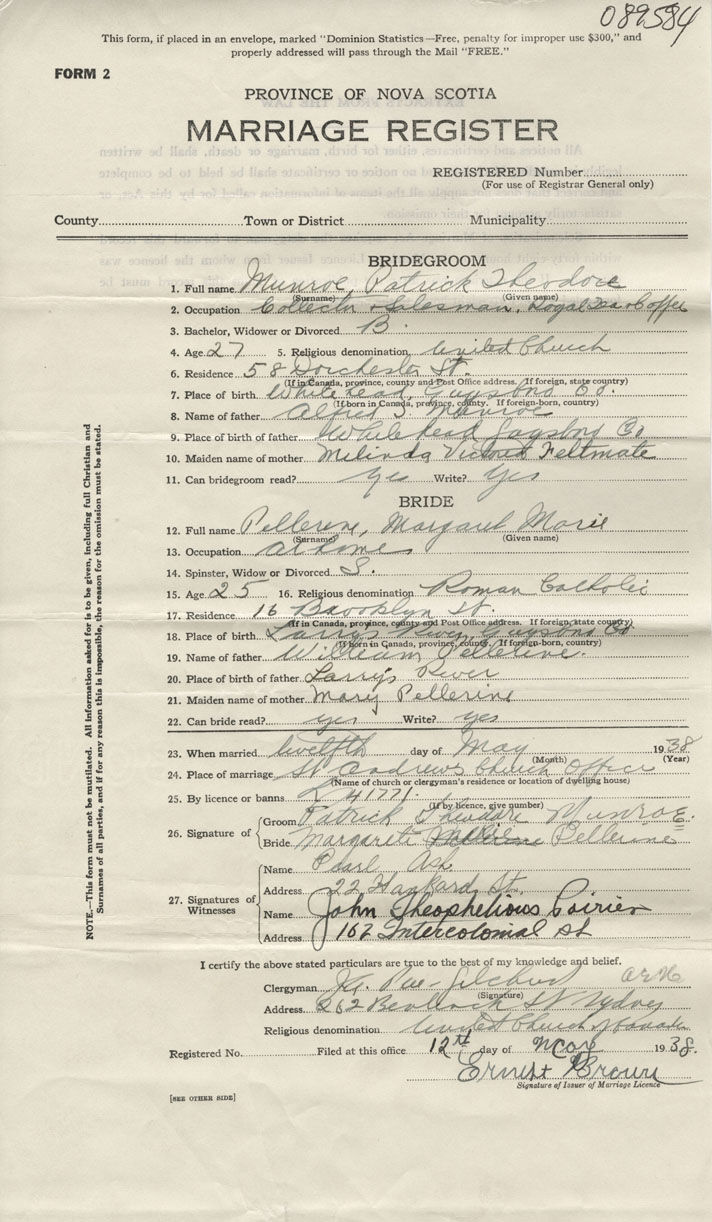 089584
This form, if placed in an envelope, marked "Dominion Statistics—Free, penalty for improper use $300," and
properly addressed will pass through the Mail "FREE."
FORM 2
PROVINCE OF NOVA SCOTIA
MARRIAGE REGISTER
REGISTERED Number
(For use of Registrar General only)
County Town or District Municipality
BRIDEGROOM
1. Full name Munroe, Patrick Theodore
(Surname) (Given name)
2. Occupation Collector & Salesman, Royal Tea & Coffee
3. Bachelor, Widower or Divorced B.
4. Age 27 5. Religious denomination United Church
6. Residence 58 Dorchester St.
(If in Canada, province, county and Post Office address. If foreign, state country)
7. Place of birth Whitehead, Guysboro Co.
(If born in Canada, province, county. If foreign-born, country)
8. Name of father Alfred S. Munroe
9. Place of birth of father Whitehead Guysboro Co
10. Maiden name of mother Milinda Victoria Feltmate
11. Can bridegroom read? Yes Write? Yes
BRIDE
12. Full name Pellerine, Margaret Marie
(Surname) (Given name)
13. Occupation at home
14. Spinster, Widow or Divorced S.
15. Age 25 16. Religious denomination Roman Catholic
17. Residence 16 Brooklyn St.
(If in Canada, province, county and Post Office address. If foreign, state country)
18. Place of birth Larry's River, Guysboro Co
(If born in Canada, province, county. If foreign-born, country)
19. Name of father William Pellerine.
20. Place of birth of father Larry's River
21. Maiden name of mother Mary Pellerine
22. Can bride read? yes Write? yes
23. When married twelfth day of May 1938
(Month) (Year)
24. Place of marriage St Andrews Church Office
(Name of church or clergyman's residence or location of dwelling house)
25. By licence or banns L 41771.
(If by licence, give number)
26. Signature of
Groom Patrick Theodore Munroe
Bride Margaret Pellerine
27. Signatures of Witnesses
Name Pearl Ash
Address 22 Hankard St.
Name John Theophelious Poirier
Address 167 Intercolonial St
I certify the above stated particulars are true to the best of my knowledge and belief.
Clergyman
(Signature)
Address 262 St Sydney
Religious denomination United Church of Canada
Registered No. Filed at this office 12th day of May 1938.
Ernest Brown
Signature of Issuer of Marriage Licence
[SEE OTHER SIDE]
NOTE.—This form must not be mutilated. All information asked for is to be given, including full Christian and
Surnames of all parties, and if for any reason this is impossible, the reason for the omission must be stated.